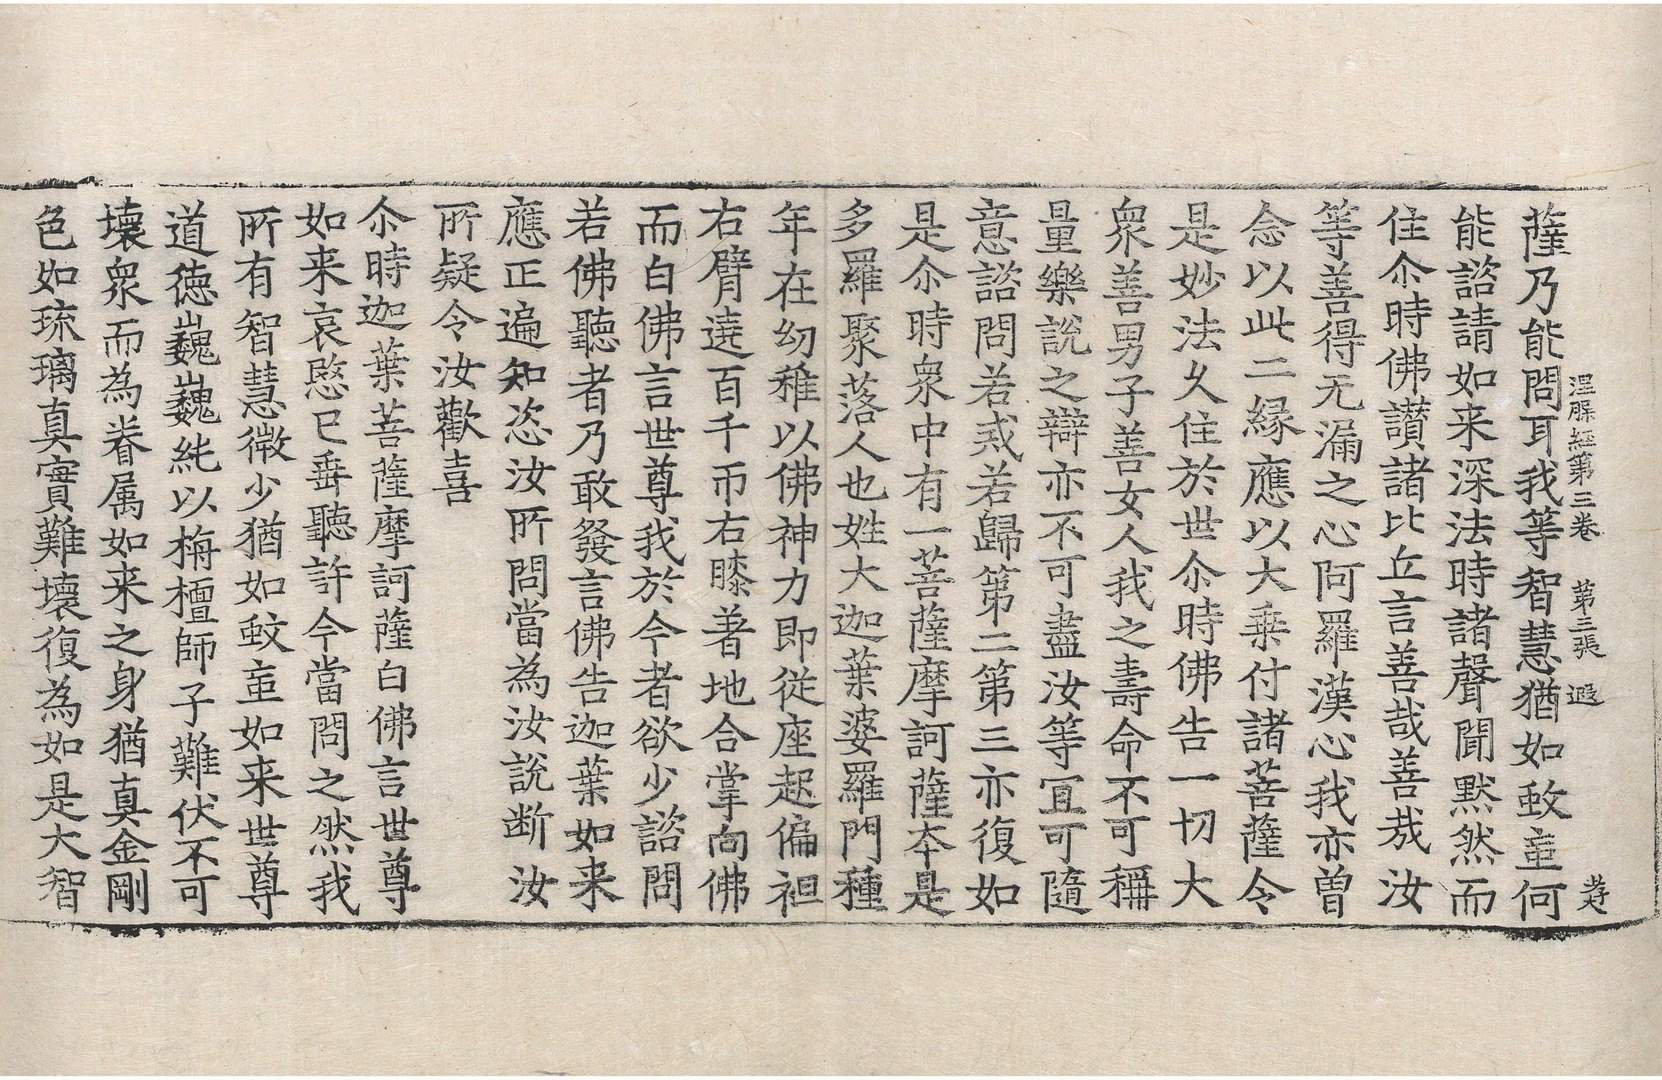 涅槃經第三卷 第三張 遐 孝
薩乃能問耳我等智慧猶如蚊䖟何
能諮請如来深法時諸聲聞黙然而
住尒時佛讃諸比丘言善哉善哉汝
等善得无漏之心阿羅漢心我亦曽
念以此二縁應以大乗付諸菩薩令
是妙法久住於世尒時佛告一切大
衆善男子善女人我之壽命不可稱
量樂說之辯亦不可盡汝等冝可隨
意諮問若戒若歸第二第三亦復如
是尒時衆中有一菩薩摩訶薩夲是
多羅聚落人也姓大迦葉婆羅門種
年在幼稚以佛神力即從座起偏袒
右臂遶百千帀右膝著地合掌向佛
而白佛言世尊我於今者欲少諮問
若佛聽者乃敢發言佛告迦葉如来
應正遍知恣汝所問當為汝說断汝
所疑令汝歡喜
尒時迦葉菩薩摩訶薩白佛言世尊
如来哀愍已垂聽許今當問之然我
所有智慧微少猶如蚊䖟如来世尊
道徳巍巍純以栴檀師子難伏不可
壊衆而為眷属如来之身猶真金剛
色如琉璃真實難壊復為如是大智